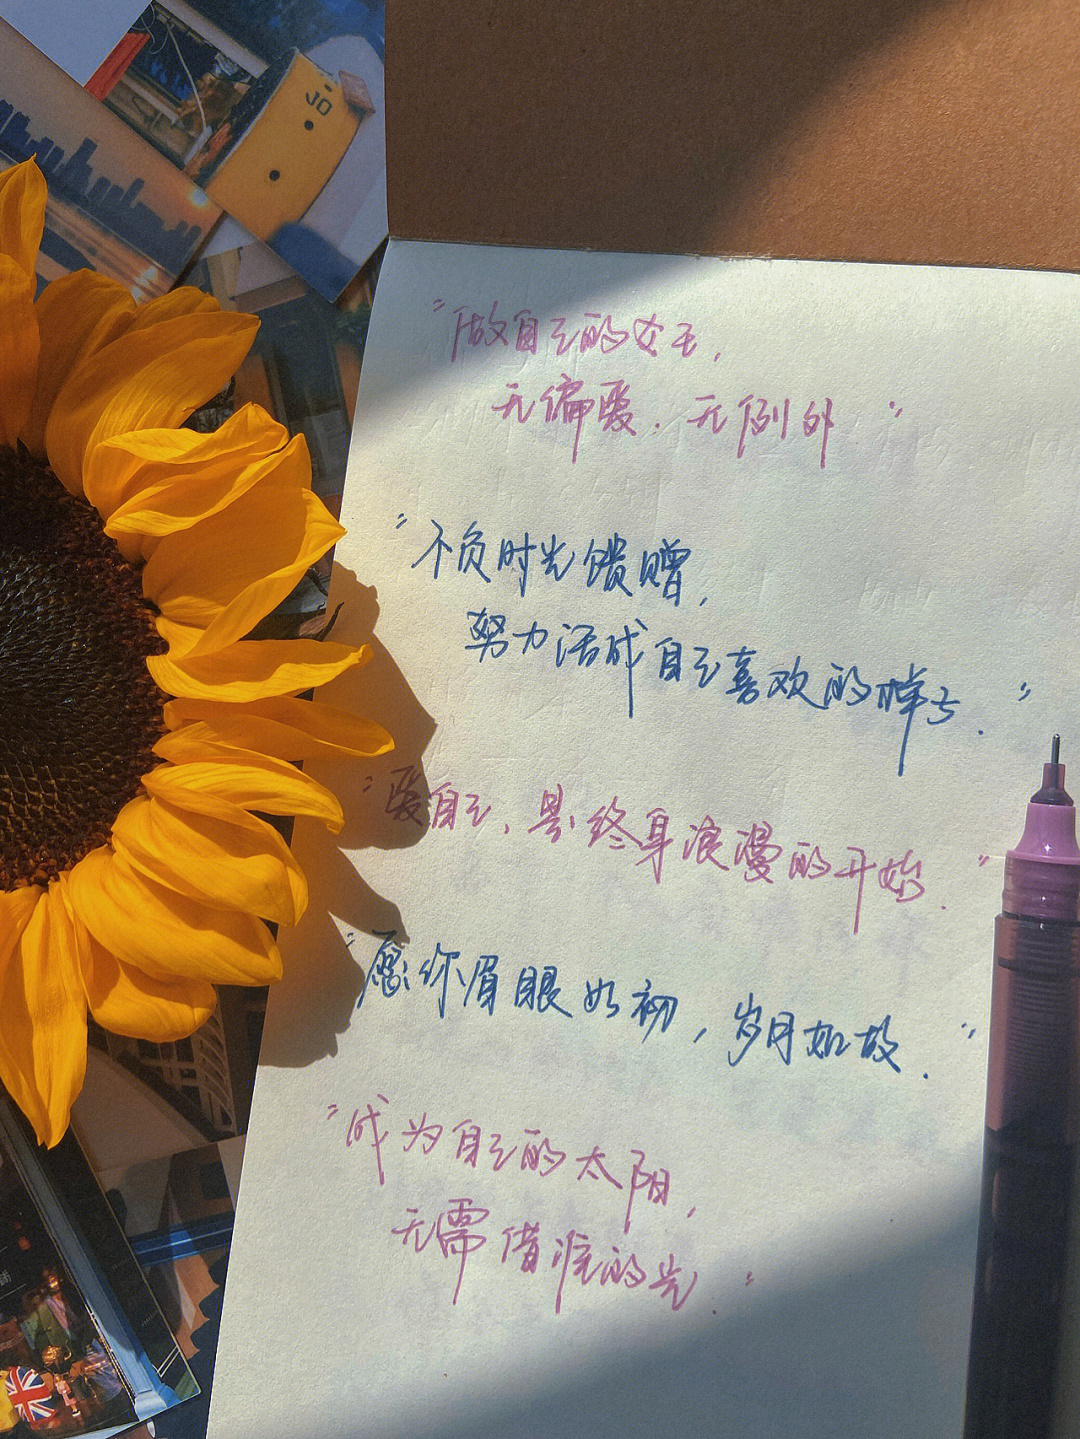 JO
"做自己的女王,
无偏爱.无例外"
"不负时光馈赠,
努力活成自己喜欢的样子."
"爱自己,是终身浪漫的开始."
"愿你眉眼如初,岁月如故."
"成为自己的太阳,
无需借谁的光."